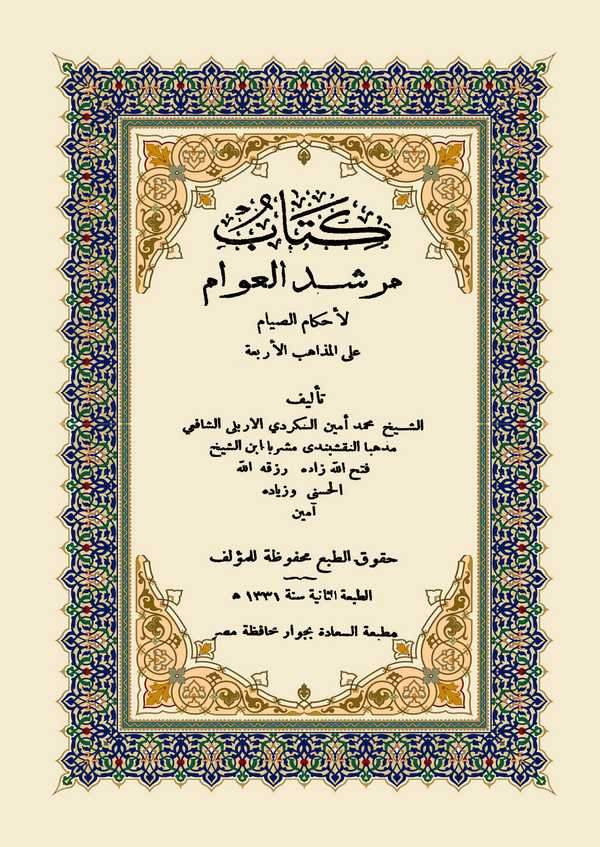 كتاب
مرشد العوام
لأحكام الصيام
على المذاهب الأربعة
تأليف
الشيخ محمد أمين الكردي الاربلي الشافعي
مذهبا النقشبندى مشربا ابن الشيخ
فتح الله زاده رزقه الله
الحسنى وزياده
آمين
حقوق الطبع محفوظة للمؤلف
الطبعة الثانية سنة ١٣٣١ ه
مطبعة السعادة بجوار محافظة مصر